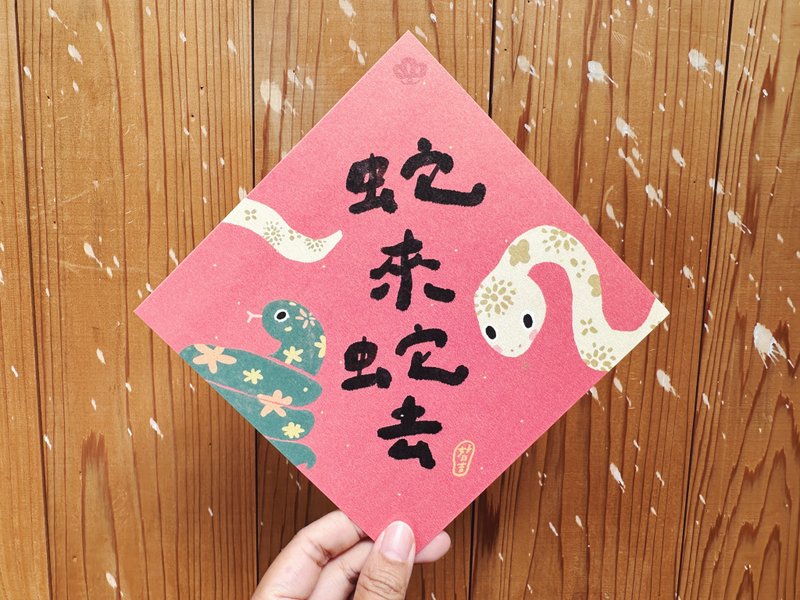 蛇
來
蛇
去